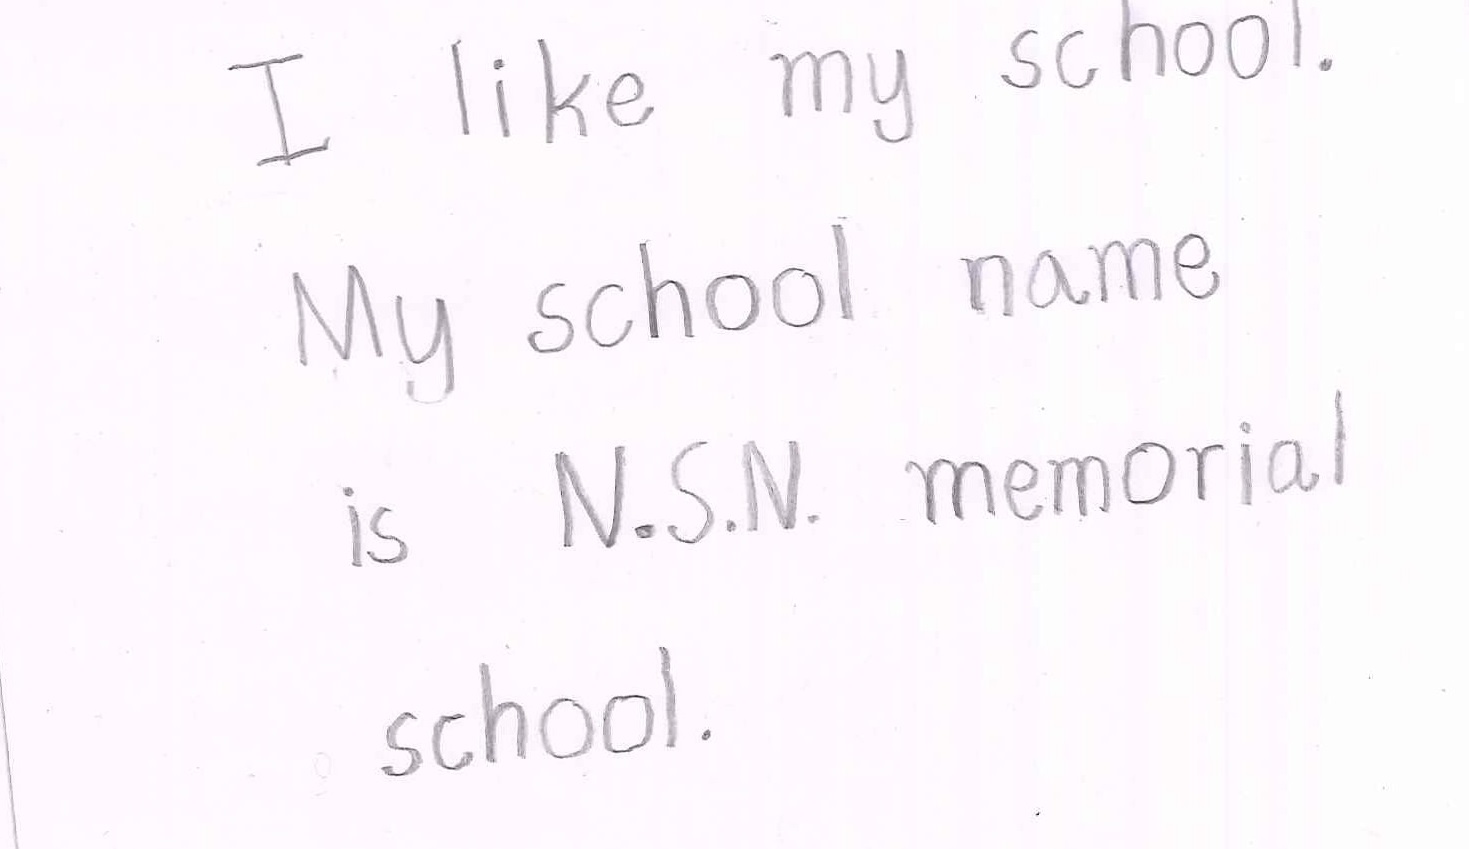 I like my school.
My school name
is N.S.N. memorial
school.